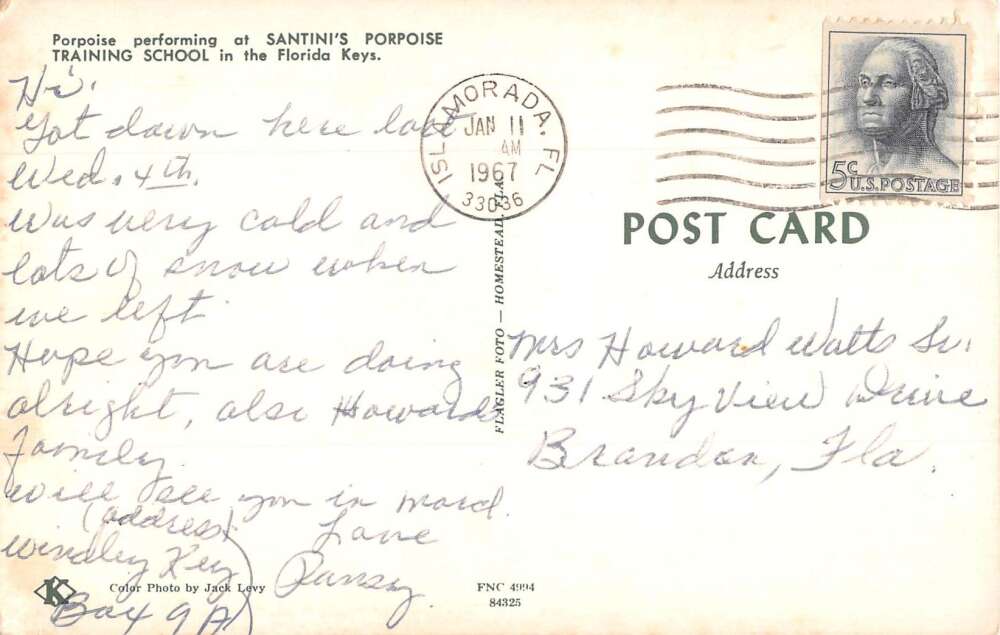 Porpoise performing at SANTINI'S PORPOISE
TRAINING SCHOOL in the Florida Keys.
Hi.
Got down here last
Wed. 4th.
Was very cold and
lots of snow when
we left
Hope you are doing
alright, also Howards
Family.
will see you in
(address) Love
Windley Key Pansy
Box 9A
Color Photo by Jack Levy
K
FNC 4994
84325
FLAGLER FOTO — HOMESTEAD, FLA.
ISLAMORADA, FL
JAN 11
AM
1967
33036
5c
U.S. POSTAGE
POST CARD
Address
Mrs Howard Watts Sr.
931 Sky View Drive
Brandon, Fla.